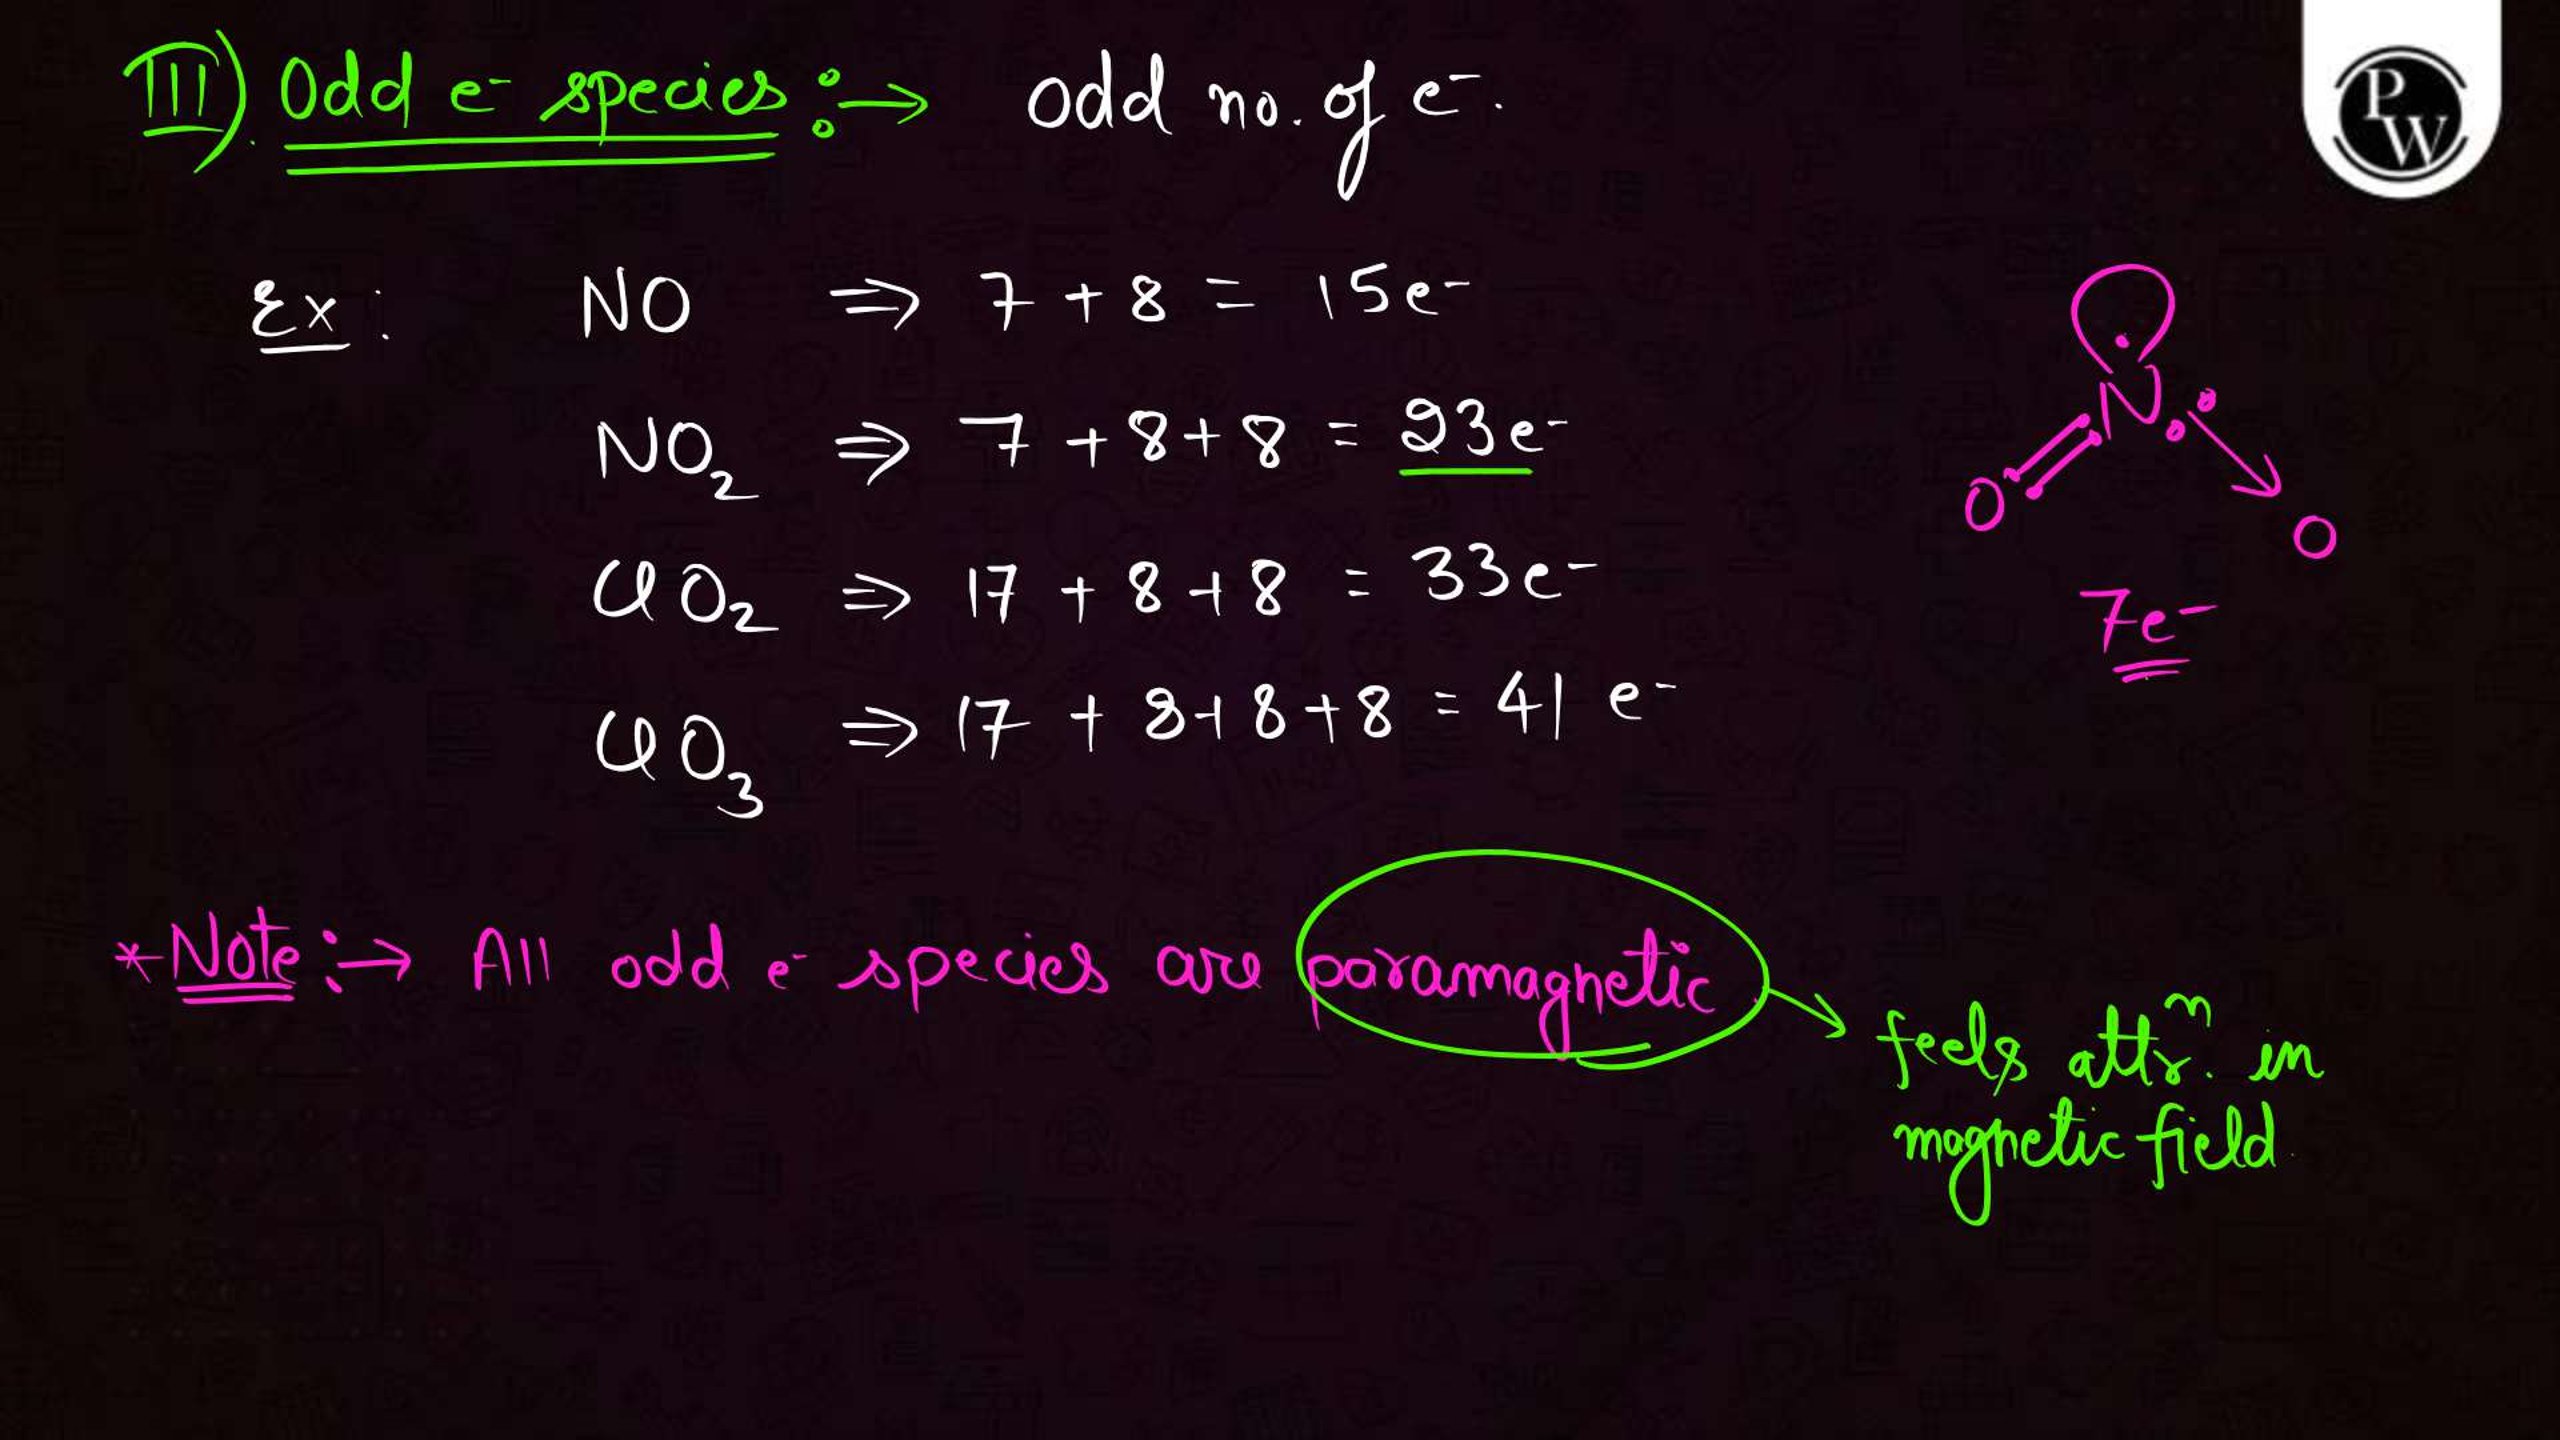 III) Odd e⁻ species :→ odd no. of e⁻.
PW
Ex: NO ⇒ 7 + 8 = 15e⁻
NO₂ ⇒ 7 + 8 + 8 = 23e⁻
ClO₂ ⇒ 17 + 8 + 8 = 33e⁻
ClO₃ ⇒ 17 + 8 + 8 + 8 = 41 e⁻
N
O
O
7e⁻
*Note :→ All odd e⁻ species are paramagnetic
→ feels attrⁿ. in
magnetic field.